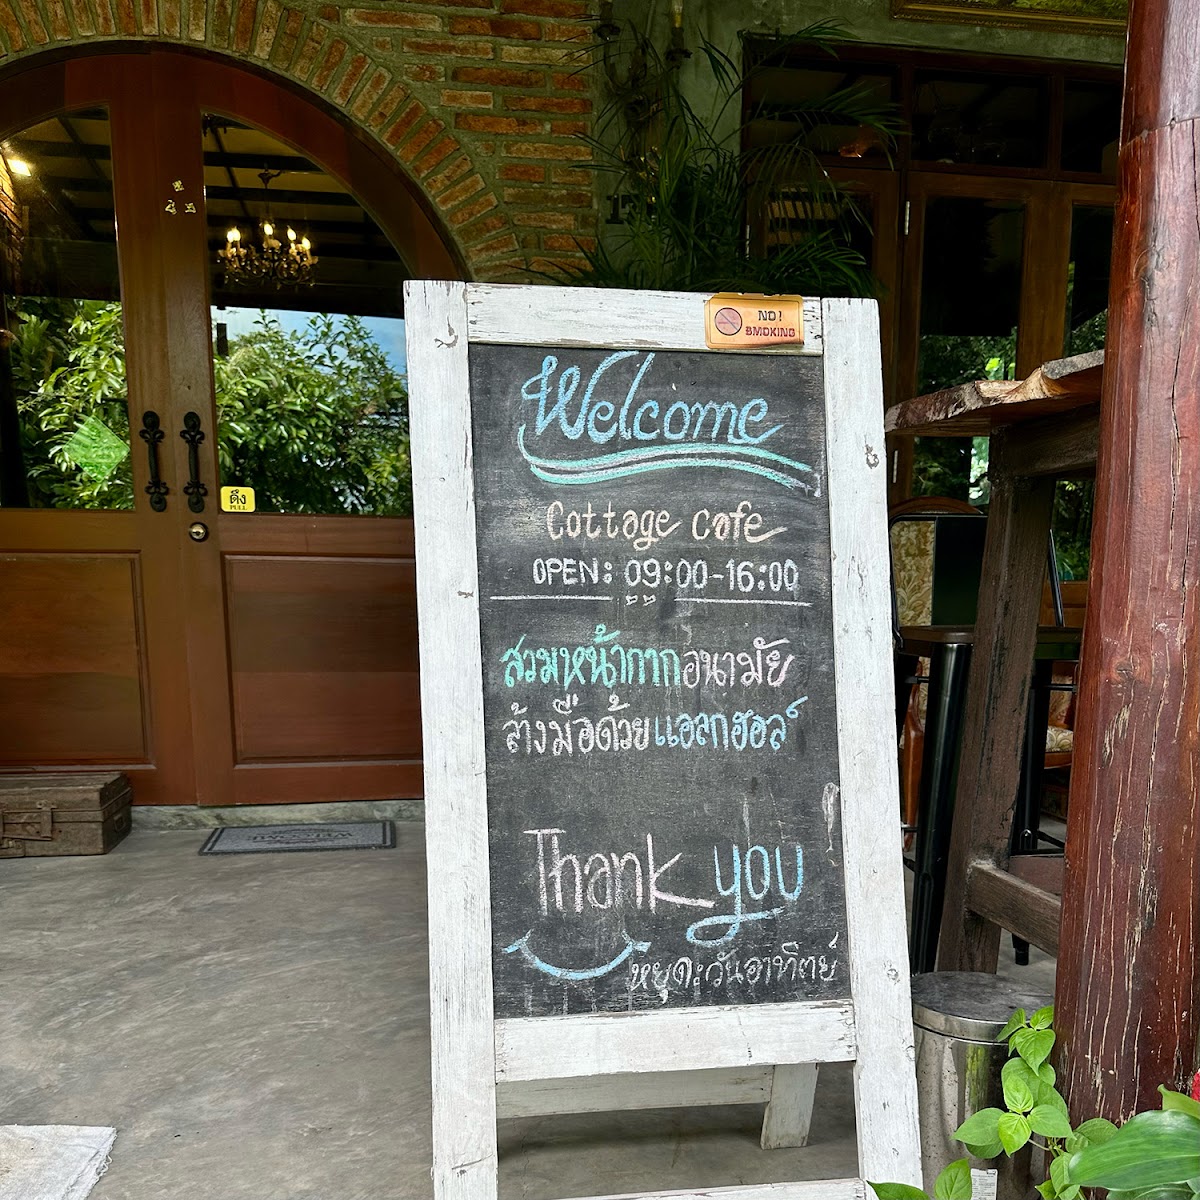 NO!
SMOKING
Welcome
Cottage cafe
OPEN: 09:00-16:00
สวมหน้ากากอนามัย
ล้างมือด้วยแอลกฮอล์
Thank you
หยุดะวันอาทิตย์
ดึง
PULL
WELCOME